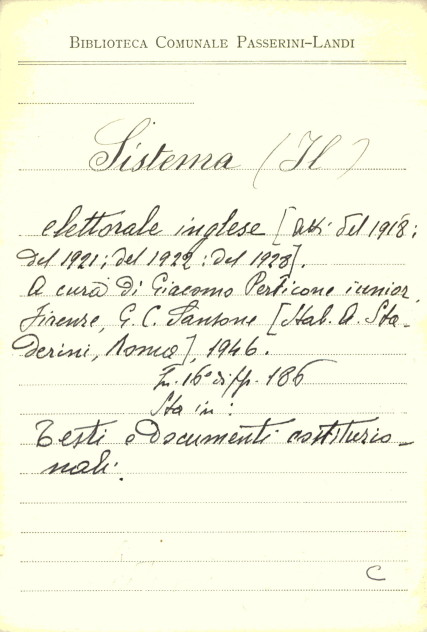 BIBLIOTECA COMUNALE PASSERINI-LANDI
Sistema (Il)
elettorale inglese [atti del 1918;
del 1921; del 1922; del 1928].
A cura di Giacomo Perticone iunior,
Firenze, G. C. Sansone [Stab. A. Sta-
derini, Roma], 1946.
In. 16º di pp. 186
Sta in:
Testi e Documenti costituzio-
nali.
C